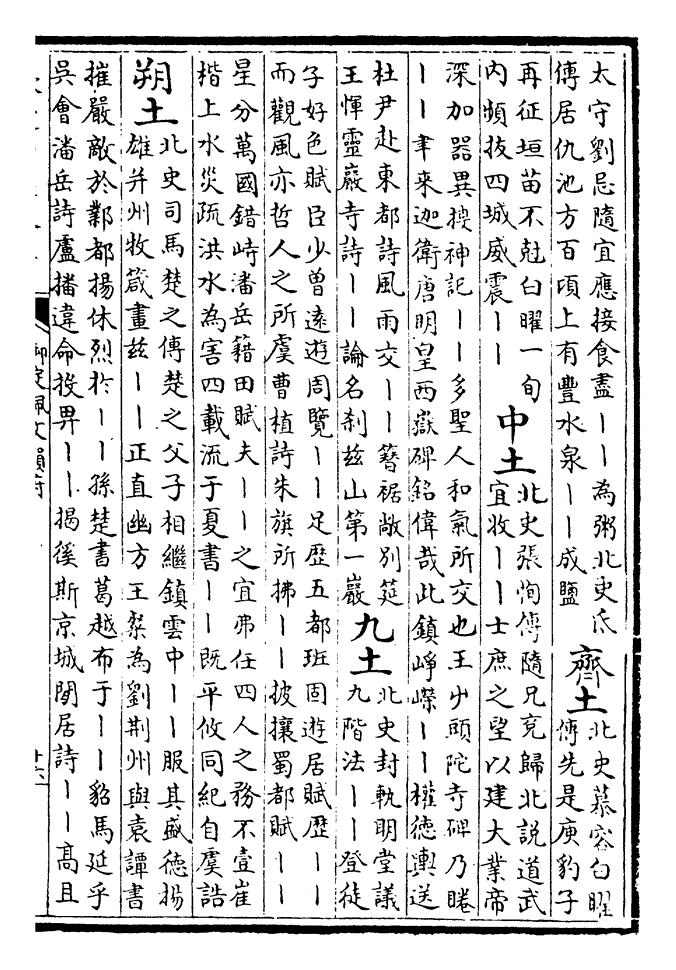 太守劉忌隨宜應接食盡丨丨為粥北史氐
傅居仇池方百頃上有豐水泉丨丨成鹽
齊土
北史慕容白曜
傅先是庾豹子
再征垣苗不尅白曜一旬
内頻拔四城威震丨丨
中土
北史張恂傅隨兄兖歸北説道武
宜收丨丨士庶之望以建大業帝
深加器異搜神記丨丨多聖人和氣所交也王屮頭陀寺碑乃睠
丨丨聿來迦衛唐明皇西嶽碑銘偉哉此鎮崢嶸丨丨權徳輿送
杜尹赴東都詩風雨交丨丨簪裾敞别筵
王惲靈巖寺詩丨丨論名刹兹山第一巖
九土
北史封軌明堂議
九階法丨丨登徒
子好色賦臣少曾逺遊周覽丨丨足歴五都班固遊居賦歴丨丨
而觀風亦哲人之所虞曹植詩朱旗所拂丨丨披攘蜀都賦丨丨
星分萬國錯峙潘岳籍田賦夫丨丨之宜弗任四人之務不壹崔
楷上水災疏洪水為害四載流于夏書丨丨既平攸同紀自虞誥
朔土
北史司馬楚之傅楚之父子相繼鎮雲中丨丨服其威徳揚
雄并州牧箴畫兹丨丨正直幽方王粲為劉荆州與袁譚書
摧嚴敵於鄴都揚休烈於丨丨孫楚書葛越布于丨丨貂馬延乎
吳會潘岳詩盧播違命投畀丨丨揭徯斯京城閒居詩丨丨髙且
御定佩文韻府